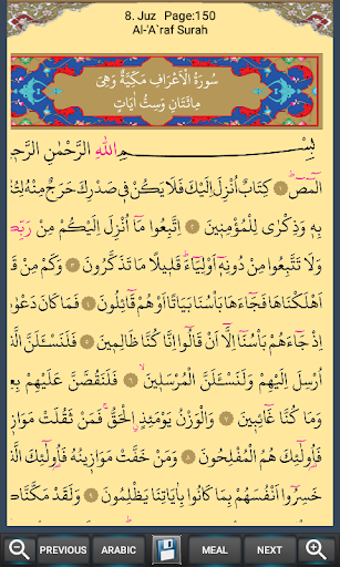 8. Juz Page:150
Al-'A`raf Surah
سُورَةُ الْاَعْرَافِ مَكِّيَّةٌ وَهِىَ
مِائَتَانِ وَسِتُّ اٰيَاتٍ
بِسْمِ اللّٰهِ الرَّحْمٰنِ الرَّحِيمِ
الٓمٓصٓ ١ كِتَابٌ اُنْزِلَ اِلَيْكَ فَلَا يَكُنْ فٖى صَدْرِكَ حَرَجٌ مِنْهُ لِتُنْ
بِهٖ وَذِكْرٰى لِلْمُؤْمِنٖينَ ٢ اِتَّبِعُوا مَٓا اُنْزِلَ اِلَيْكُمْ مِنْ رَبِّكُ
وَلَا تَتَّبِعُوا مِنْ دُونِهٖٓ اَوْلِيَٓاءَ قَلٖيلًا مَا تَذَكَّرُونَ ٣ وَكَمْ مِنْ قَ
اَهْلَكْنَاهَا فَجَٓاءَهَا بَاْسُنَا بَيَاتًا اَوْ هُمْ قَٓائِلُونَ ٤ فَمَا كَانَ دَعْوٰ
اِذْ جَٓاءَهُمْ بَاْسُنَٓا اِلَّٓا اَنْ قَالُٓوا اِنَّا كُنَّا ظَالِمٖينَ ٥ فَلَنَسْـَٔلَنَّ
اُرْسِلَ اِلَيْهِمْ وَلَنَسْـَٔلَنَّ الْمُرْسَلٖينَ ٦ فَلَنَقُصَّنَّ عَلَيْهِمْ بِعِ
وَمَا كُنَّا غَٓائِبٖينَ ٧ وَالْوَزْنُ يَوْمَئِذٍ الْحَقُّ فَمَنْ ثَقُلَتْ مَوَازٖ
فَاُولٰٓئِكَ هُمُ الْمُفْلِحُونَ ٨ وَمَنْ خَفَّتْ مَوَازٖينُهُ فَاُولٰٓئِكَ الَّ
خَسِرُٓوا اَنْفُسَهُمْ بِمَا كَانُوا بِاٰيَاتِنَا يَظْلِمُونَ ٩ وَلَقَدْ مَكَّنَّا
PREVIOUS ARABIC MEAL NEXT